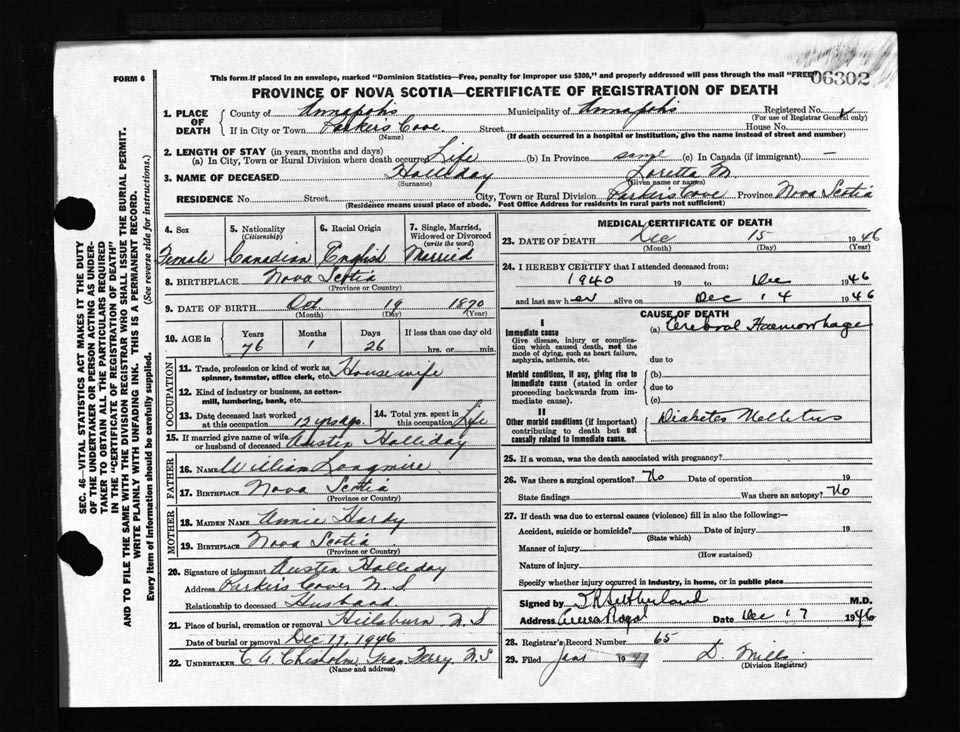 FORM 6
This form if placed in an envelope, marked "Dominion Statistics—Free, penalty for improper use $300," and properly addressed will pass through the mail "FREE"
06302
PROVINCE OF NOVA SCOTIA—CERTIFICATE OF REGISTRATION OF DEATH
1. PLACE OF DEATH
County of Annapolis Municipality of Annapolis Registered No.
(For use of Registrar General only)
If in City or Town Parker's Cove. Street House No.
(Name) (If death occurred in a hospital or institution, give the name instead of street and number)
2. LENGTH OF STAY (in years, months and days)
(a) In City, Town or Rural Division where death occurred Life (b) In Province same (c) In Canada (if immigrant) —
3. NAME OF DECEASED Halliday Loretta M.
(Surname) (Given name or names)
RESIDENCE No. Street City, Town or Rural Division Parker's Cove Province Nova Scotia
(Residence means usual place of abode. Post Office Address for residents in rural parts not sufficient)
4. Sex 5. Nationality (Citizenship) 6. Racial Origin 7. Single, Married, Widowed or Divorced (write the word)
Female Canadian English Married
8. BIRTHPLACE Nova Scotia
(Province or Country)
9. DATE OF BIRTH Oct. 19 1870
(Month) (Day) (Year)
10. AGE in Years Months Days If less than one day old
76 1 26 hrs. or min.
OCCUPATION
11. Trade, profession or kind of work as spinner, teamster, office clerk, etc. Housewife
12. Kind of industry or business, as cotton-mill, lumbering, bank, etc.
13. Date deceased last worked at this occupation 12 yrs ago. 14. Total yrs. spent in this occupation Life
15. If married give name of wife or husband of deceased Austin Halliday
FATHER
16. NAME William Longmire
17. BIRTHPLACE Nova Scotia
(Province or Country)
MOTHER
18. MAIDEN NAME Annie Hardy
19. BIRTHPLACE Nova Scotia
(Province or Country)
20. Signature of informant Austin Halliday
Address Parker's Cove, N.S
Relationship to deceased Husband
21. Place of burial, cremation or removal Hillsburn N.S
Date of burial or removal Dec 17, 1946
22. UNDERTAKER C A Chisholm Gran. Ferry. N.S
(Name and address)
MEDICAL CERTIFICATE OF DEATH
23. DATE OF DEATH Dec 15 1946
(Month) (Day) (Year)
24. I HEREBY CERTIFY that I attended deceased from:
1940 19 to Dec 1946
and last saw her alive on Dec 14 1946
CAUSE OF DEATH
I
Immediate cause (a) Cerebral Haemorrhage
Give disease, injury or complication which caused death, not the mode of dying, such as heart failure, asphyxia, asthenia, etc.
due to
Morbid conditions, if any, giving rise to immediate cause (stated in order proceeding backwards from immediate cause).
(b)
due to
(c)
II
Other morbid conditions (if important) contributing to death but not causally related to immediate cause.
Diabetes Mellitus
25. If a woman, was the death associated with pregnancy?
26. Was there a surgical operation? No Date of operation 19
State findings Was there an autopsy? No
27. If death was due to external causes (violence) fill in also the following:—
Accident, suicide or homicide? Date of injury 19
(State which)
Manner of injury
(How sustained)
Nature of injury
Specify whether injury occurred in industry, in home, or in public place
Signed by Sutherland M.D.
Address Date Dec 17 1946
28. Registrar's Record Number 65
29. Filed Jan 1947 D. Mills
(Division Registrar)
SEC. 46—VITAL STATISTICS ACT MAKES IT THE DUTY
OF THE UNDERTAKER OR PERSON ACTING AS UNDER-
TAKER TO OBTAIN ALL THE PARTICULARS REQUIRED
IN THE "CERTIFICATE OF REGISTRATION OF DEATH"
AND TO FILE THE SAME WITH THE DIVISION REGISTRAR WHO SHALL ISSUE THE BURIAL PERMIT.
WRITE PLAINLY WITH UNFADING INK. THIS IS A PERMANENT RECORD.
Every item of information should be carefully supplied. (See reverse side for instructions.)